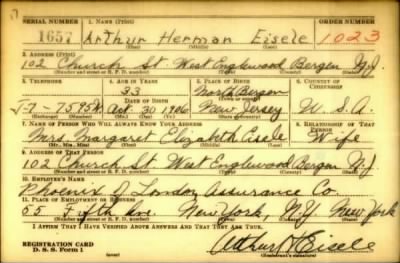 SERIAL NUMBER 1. NAME (Print) ORDER NUMBER
1657 Arthur Herman Eisele 1023
(First) (Middle) (Last)
2. ADDRESS (Print)
102 Church St West Englewood Bergen N.J.
(Number and street or R. F. D. number) (Town) (County) (State)
3. TELEPHONE 4. AGE IN YEARS 5. PLACE OF BIRTH 6. COUNTRY OF CITIZENSHIP
33 North Bergen
DATE OF BIRTH (Town or county)
7-7595W Oct. 30 1906 New Jersey U.S.A.
(Exchange) (Number) (Mo.) (Day) (Yr.) (State or country)
7. NAME OF PERSON WHO WILL ALWAYS KNOW YOUR ADDRESS 8. RELATIONSHIP OF THAT PERSON
Mrs. Margaret Elizabeth Eisele Wife
(Mr., Mrs., Miss) (First) (Middle) (Last)
9. ADDRESS OF THAT PERSON
102 Church St West Englewood Bergen N.J
(Number and street or R. F. D. number) (Town) (County) (State)
10. EMPLOYER'S NAME
Phoenix of London Assurance Co.
11. PLACE OF EMPLOYMENT OR BUSINESS
55 Fifth Ave. New York, N.Y. New York
(Number and street or R. F. D. number) (Town) (County) (State)
I AFFIRM THAT I HAVE VERIFIED ABOVE ANSWERS AND THAT THEY ARE TRUE.
REGISTRATION CARD
D. S. S. Form 1
Arthur H Eisele
(Registrant's signature)